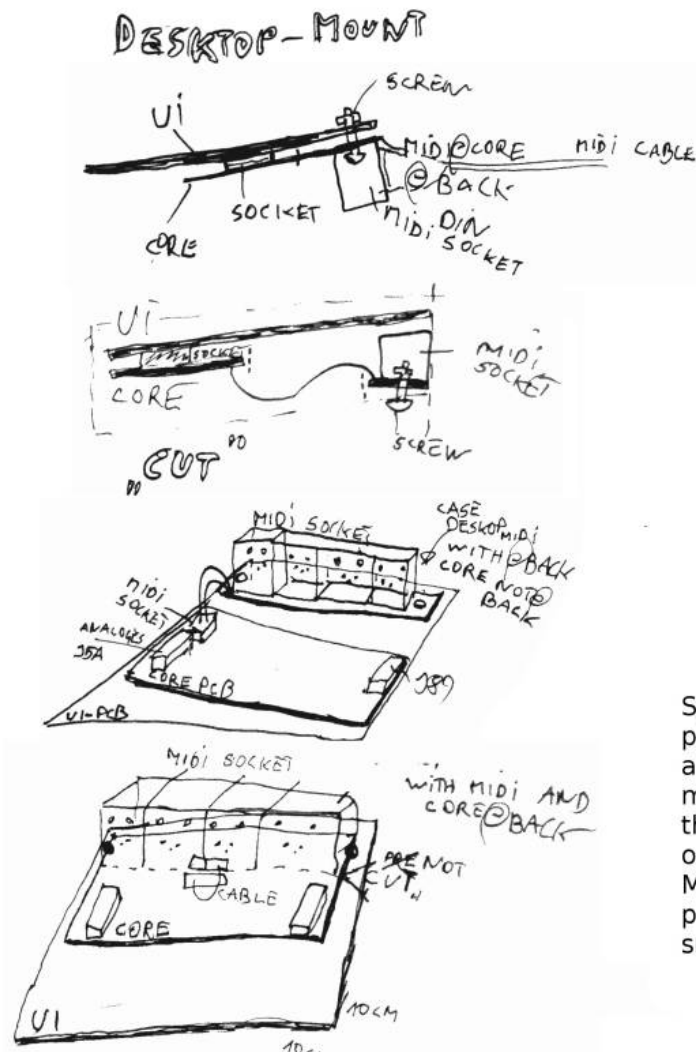 DESKTOP-MOUNT
SCREW
UI
MIDI@CORE
MIDI CABLE
@BACK
SOCKET
MIDI DIN
SOCKET
CORE
UI
SOCKET
MIDI
SOCKET
CORE
SCREW
„CUT"
MIDI SOCKET
CASE
DESKOP MIDI
WITH @BACK
CORE NOT@
BACK
MIDI
SOCKET
ANALOGES
J5A
CORE PCB
J89
UI-PCB
MIDI SOCKET
WITH MIDI AND
CORE@BACK
NOT
CUT"
CABLE
CORE
UI
10CM
S
p
a
m
th
o
M
p
s